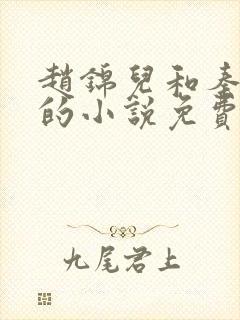 趙錦兒和秦
的小說免費
九尾君上